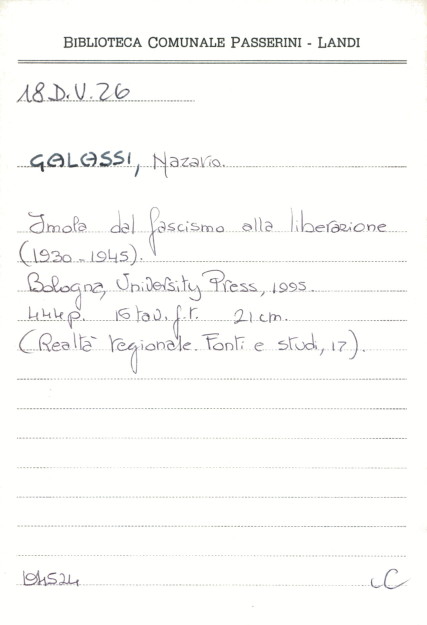 BIBLIOTECA COMUNALE PASSERINI - LANDI
18 D.V.26
GALASSI, Nazario.
Imola dal fascismo alla liberazione
(1930-1945).
Bologna, University Press, 1995.
444p. 16 tav. f.t. 21 cm.
(Realtà regionale. Fonti e studi, 17).
194524